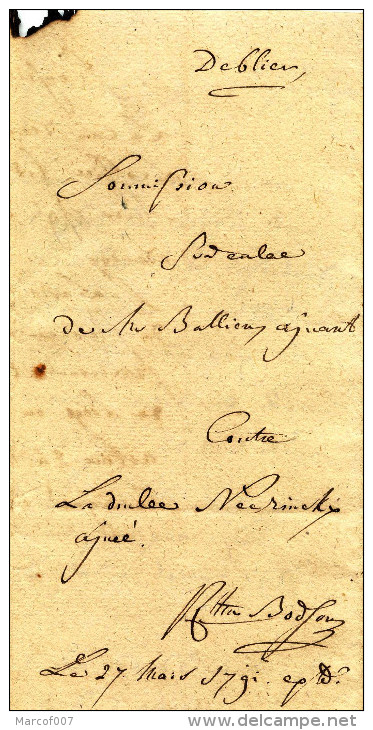 Deblier
Soumission
de Mr Balliens ajuant
Contre
La dmlee Neezinckx
ajneé.
Bodson
Le 27 Mars 1791.
Marcof007
www.delcampe.net